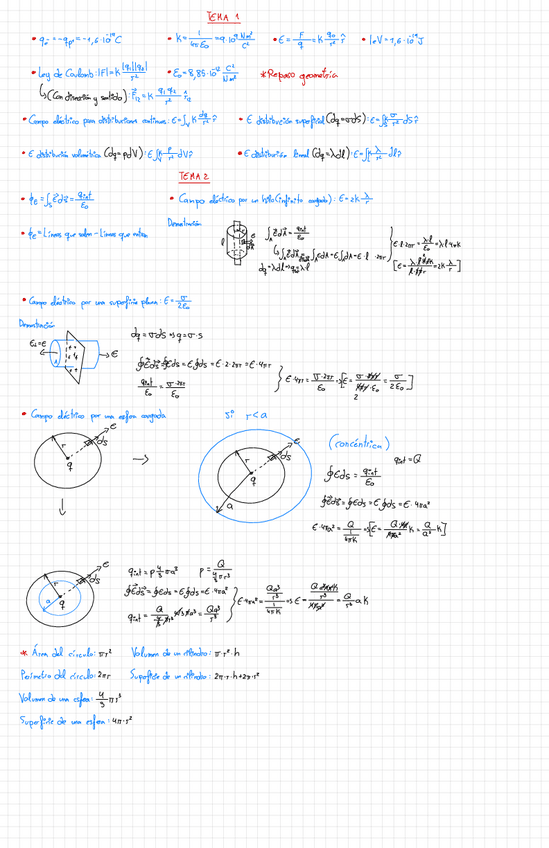 TEMA 1
• qe⁻ = -qp⁺ = -1,6·10⁻¹⁹ C • K = 1/4πε₀ = 9·10⁹ Nm²/C² • E = F/q = K q₀/r² r̂ • 1eV = 1,6·10⁻¹⁹ J
• Ley de Coulomb: |F| = K |q₁||q₂|/r² • ε₀ = 8,85·10⁻¹² C²/Nm² * Repaso geometría
↳ (Con dirección y sentido): F₁₂ = K q₁q₂/r² r̂₁₂
• Campo eléctrico para distribuciones continuas: E = ∫ K dq/r² r̂ • E distribución superficial (dq = σdS): E = ∫ K σ/r² dS r̂
• E distribución volumétrica (dq = ρdV): E ∫ K ρ/r² dV r̂ • E distribución lineal (dq = λdl): E = ∫ K λ/r² dl r̂
TEMA 2
• ϕE = ∫ E dS = qint/ε₀ • Campo eléctrico por un hilo (infinito cargado): E = 2K λ/r
• ϕE = Líneas que salen - Líneas que entran
Demostración
∫ E dA = qint/ε₀
dq = λdl ⇒ q = λl
E·l·2πr = λl/ε₀ = λl 4πK
• Campo eléctrico por una superficie plana: E = σ/2ε₀
Demostración
dq = σdS ⇒ q = σ·S
E₁ = E
E
∮ E dS = ∮ E dS = E ∮ dS = E·2·2πr = E·4πr
qint/ε₀ = σ·2πr/ε₀
E·4πr = σ·2πr/ε₀
• Campo eléctrico por una esfera cargada Si r < a
E
dS
r
q
→
E
dS
r
q
a
(concéntrica)
qint = Q
∮ E dS = qint/ε₀
∮ E dS = ∮ E dS = E ∮ dS = E·4πa²
↓
E
dS
r
a
q
qint = ρ 4/3 πa³ ρ = Q/(4/3 πr³)
∮ E dS = ∮ E dS = E ∮ dS = E·4πa²
* Área del círculo: πr² Volumen de un cilindro: π·r²·h
Perímetro del círculo: 2πr Superficie de un cilindro: 2π·r·h+2π·r²
Volumen de una esfera: 4/3 πr³
Superficie de una esfera: 4π·r²